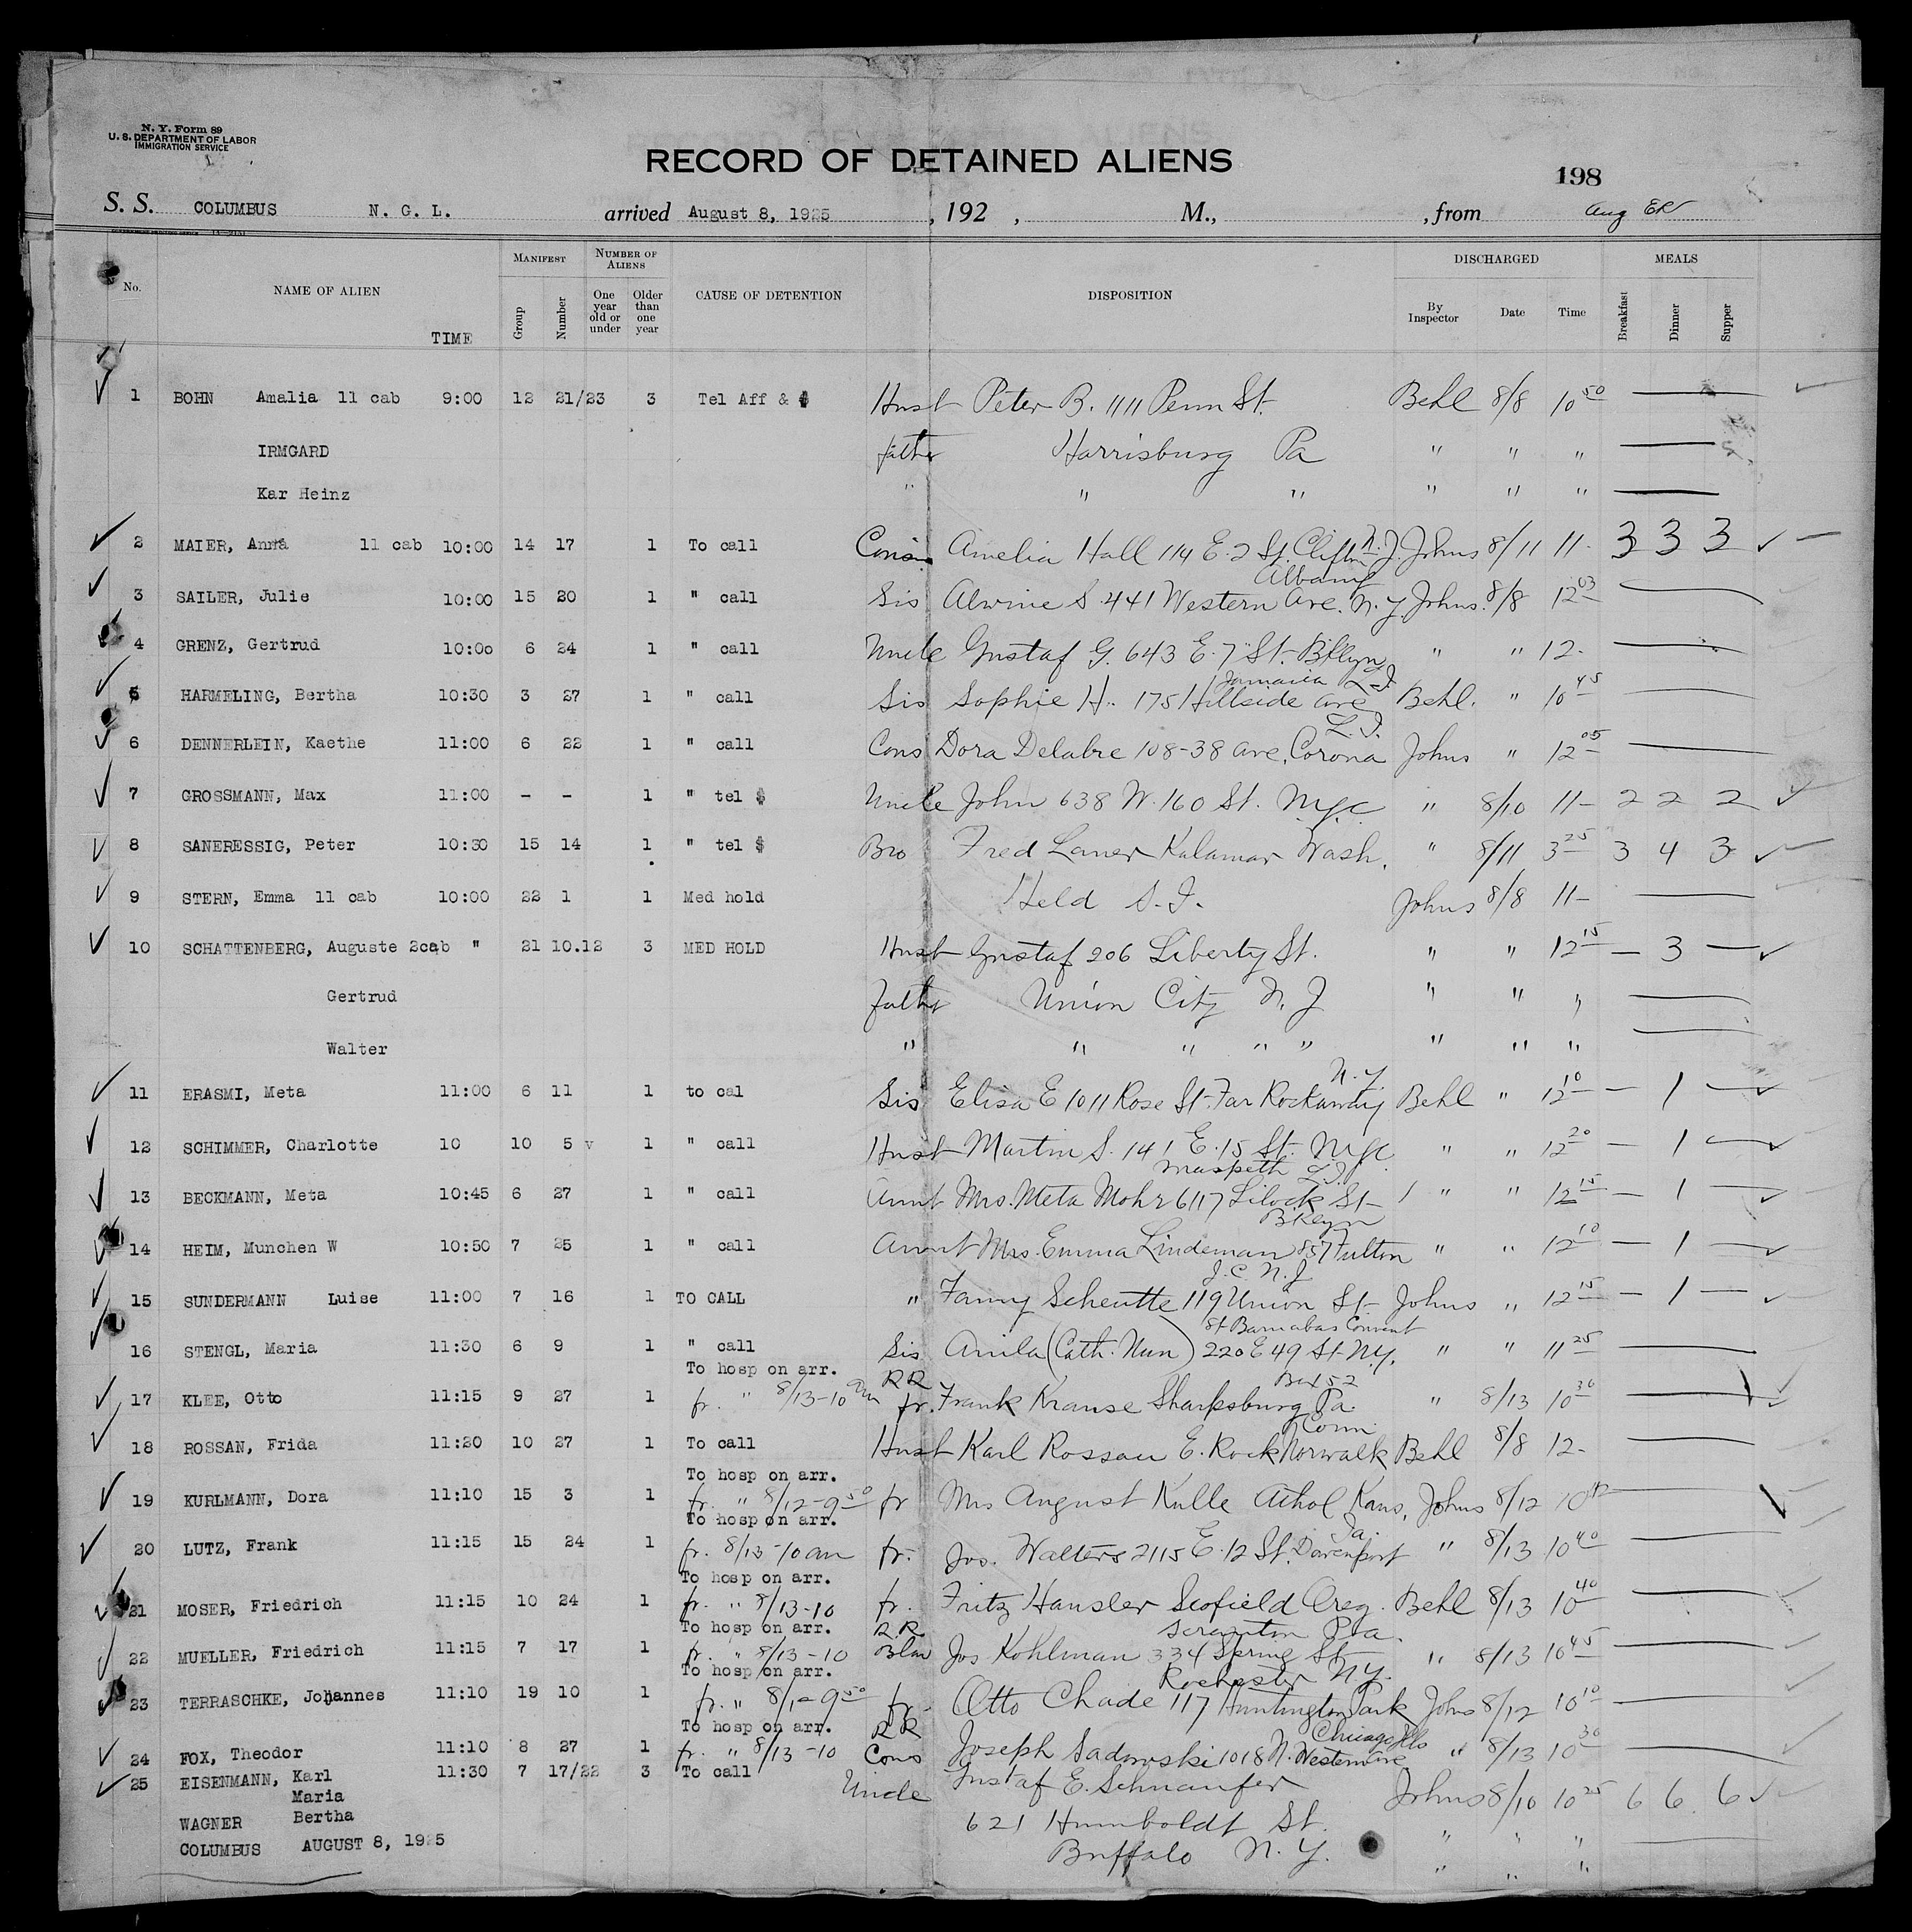 N. Y. Form 89
U. S. DEPARTMENT OF LABOR
IMMIGRATION SERVICE
RECORD OF DETAINED ALIENS
198
S. S. COLUMBUS N. G. L. arrived August 8, 1925, 192 , M., , from Aug
No. NAME OF ALIEN TIME MANIFEST Group Number NUMBER OF ALIENS One year old or under Older than one year CAUSE OF DETENTION DISPOSITION DISCHARGED By Inspector Date Time MEALS Breakfast Dinner Supper
1 BOHN Amalia 11 cab 9:00 12 21/23 3 Tel Aff & $ Husb Peter B. 1111 Penn St. Behl 8/8 10 50 —
IRMGARD father Harrisburg Pa " " " —
Kar Heinz " " " " " " —
2 MAIER, Anna 11 cab 10:00 14 17 1 To call Cousin Amelia Hall 114 E. 2 St. Clifton N.J. Johns 8/11 11- 3 3 3 ✓ —
3 SAILER, Julie 10:00 15 20 1 " call Sis Alwine S. 441 Western Ave. Albany N.Y. Johns. 8/8 12 03 —
4 GRENZ, Gertrud 10:00 6 24 1 " call Uncle Gustaf G. 643 E. 7 St. Bklyn " " 12- —
5 HARMELING, Bertha 10:30 3 27 1 " call Sis Sophie H. 175 Hillside Ave Jamaica L.I. Behl. " 10 45 —
6 DENNERLEIN, Kaethe 11:00 6 22 1 " call Cons Dora Delabre 108-38 Ave, Corona L.I. Johns " 12 05 —
7 GROSSMANN, Max 11:00 - - 1 " tel $ Uncle John 638 W. 160 St. N.Y.C. " 8/10 11- 2 2 2 ✓
8 SANERESSIG, Peter 10:30 15 14 1 " tel $ Bro Fred Laner Kalamar Wash. " 8/11 3 25 3 4 3 ✓
9 STERN, Emma 11 cab 10:00 22 1 1 Med hold Held S.I. Johns 8/8 11- —
10 SCHATTENBERG, Auguste 2cab " 21 10.12 3 MED HOLD Husb Gustaf 206 Liberty St. " " 12 15 — 3 — ✓
Gertrud Father Union City N. J " " " —
Walter " " " " " " " " —
11 ERASMI, Meta 11:00 6 11 1 to cal Sis Elisa E 1011 Rose St. Far Rockaway N.Y Behl " 12 10 — 1 — ✓
12 SCHIMMER, Charlotte 10 10 5 v 1 " call Husb Martin S. 141 E. 15 St. N.Y.C. " " 12 20 — 1 — ✓
13 BECKMANN, Meta 10:45 6 27 1 " call Aunt Mrs. Meta Mohr 6117 St Maspeth L.I. " " 12 15 — 1 — ✓
14 HEIM, Munchen W 10:50 7 25 1 " call Aunt Mrs. Emma Lindeman 857 Fulton Bklyn " " 12 10 — 1 — ✓
15 SUNDERMANN Luise 11:00 7 16 1 TO CALL " Fanny Scheutte 119 Union St J.C. N.J Johns " 12 15 — 1 — ✓
16 STENGL, Maria 11:30 6 9 1 " call Sis (Cath. Nun) St Barnabas Convent 220 E 49 St N.Y. " " 11 25 —
To hosp on arr.
17 KLEE, Otto 11:15 9 27 1 fr. " 8/13-10 am RR fr. Frank Krause Sharpsburg Pa. Box 52 " 8/13 10 30 — ✓
18 ROSSAN, Frida 11:20 10 27 1 To call Husb Karl Rossau E. Rock Norwalk Conn Behl 8/8 12- —
To hosp on arr.
19 KURLMANN, Dora 11:10 15 3 1 fr. " 8/12-9 50 fr Mrs August Kulle Athol Kans, Johns 8/12 10 —
To hosp on arr.
20 LUTZ, Frank 11:15 15 24 1 fr. 8/13-10 am fr. Jos. Walters 2115 E. 12 St. Davenport Ia. " 8/13 10 40 —
To hosp on arr.
21 MOSER, Friedrich 11:15 10 24 1 fr. " 8/13-10 fr. Fritz Hansler Scofield Oreg. Behl 8/13 10 40 —
To hosp on arr.
22 MUELLER, Friedrich 11:15 7 17 1 fr. " 8/13-10 RR Jos Kohlman 334 Spring St Scranton Pa. " 8/13 10 45 —
To hosp on arr.
23 TERRASCHKE, Johannes 11:10 19 10 1 fr. " 8/12 9 50 fr. Otto Chade 117 Huntington Park Rochester N.Y. Johns 8/12 10 10 —
To hosp on arr.
24 FOX, Theodor 11:10 8 27 1 fr. " 8/13-10 RR Cons Joseph Sadowski 1018 N. Western Ave Chicago Ills " 8/13 10 30 —
25 EISENMANN, Karl 11:30 7 17/22 3 To call Uncle Gustaf E. Schnaufer Johns 8/10 10 25 6 6 6 ✓
Maria 621 Humboldt St. " " " —
WAGNER Bertha Buffalo N. Y. " " "
COLUMBUS AUGUST 8, 1925